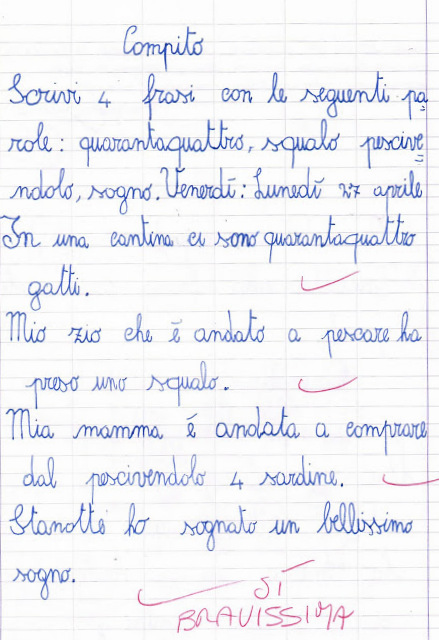 Compito
Scrivi 4 frasi con le seguenti pa
role: quarantaquattro, squalo pescive
ndolo, sogno. Venerdī: Lunedī 27 aprile
In una cantina ci sono quarantaquattro
gatti.
Mio zio che ē andato a pescare ha
preso uno squalo.
Mia mamma ē andata a comprare
dal pescivendolo 4 sardine.
Stanotte ho sognato un bellissimo
sogno.
SÌ
BRAVISSIMA